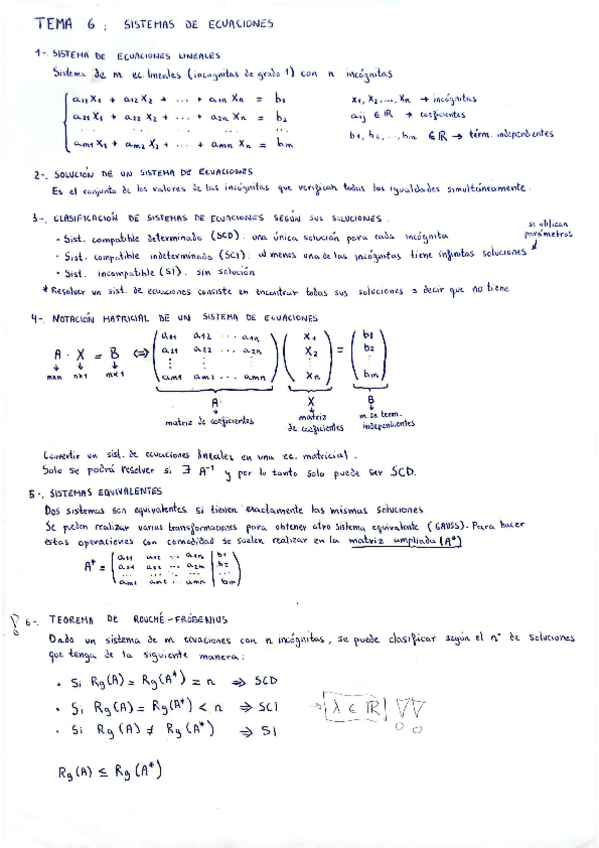 TEMA 6: SISTEMAS DE ECUACIONES
1-. SISTEMA DE ECUACIONES LINEALES
Sistema de m ec. lineales (incognitas de grado 1) con n incógnitas
a11 X1 + a12 X2 + ... + a1n Xn = b1
x1, x2, ..., xn → incógnitas
a21 X1 + a22 X2 + ... + a2n Xn = b2
aij ∈ ℝ → coeficientes
... ... ... ...
am1 X1 + am2 X2 + ... + amn Xn = bm
b1, b2, .., bm ∈ ℝ → térm. independientes
2-. SOLUCIÓN DE UN SISTEMA DE ECUACIONES
Es el conjunto de los valores de las incógnitas que verifican todas las igualdades simultáneamente.
3-. CLASIFICACIÓN DE SISTEMAS DE ECUACIONES SEGÚN SUS SOLUCIONES.
se utilizan
parámetros
· Sist. compatible determinado (SCD). una única solución para cada incógnita
· Sist. compatible indeterminado (SCI). al menos una de las incógnitas tiene infinitas soluciones
· Sist. incompatible (SI). sin solución
* Resolver un sist. de ecuaciones consiste en encontrar todas sus soluciones o decir que no tiene
4-. NOTACIÓN MATRICIAL DE UN SISTEMA DE ECUACIONES
a11 a12 ... a1n   x1   b1
A · X = B ⇔ a21 a22 ... a2n   x2 = b2
mxn nx1 mx1
am1 am2 ... amn   xn   bm
A X B
matriz de coeficientes
matriz de coeficientes
m. de term. independientes
Convertir un sist. de ecuaciones lineales en una ec. matricial.
Solo se podrá resolver si ∃ A⁻¹ y por lo tanto solo puede ser SCD.
5-. SISTEMAS EQUIVALENTES
Dos sistemas son equivalentes si tienen exactamente las mismas soluciones
Se pueden realizar varias transformaciones para obtener otro sistema equivalente (GAUSS). Para hacer
estas operaciones con comodidad se suelen realizar en la matriz ampliada (A*)
a11 a12 ... a1n | b1
A* = a21 a22 ... a2n | b2
... ... ... ...
am1 am2 ... amn | bm
6-. TEOREMA DE ROUCHÉ-FRÖBENIUS
Dado un sistema de m ecuaciones con n incógnitas, se puede clasificar según el nº de soluciones
que tenga de la siguiente manera:
· Si Rg(A) = Rg(A*) = n ⇒ SCD
· Si Rg(A) = Rg(A*) < n ⇒ SCI → λ ∈ ℝ !!
· Si Rg(A) ≠ Rg(A*) ⇒ SI
Rg(A) ≤ Rg(A*)